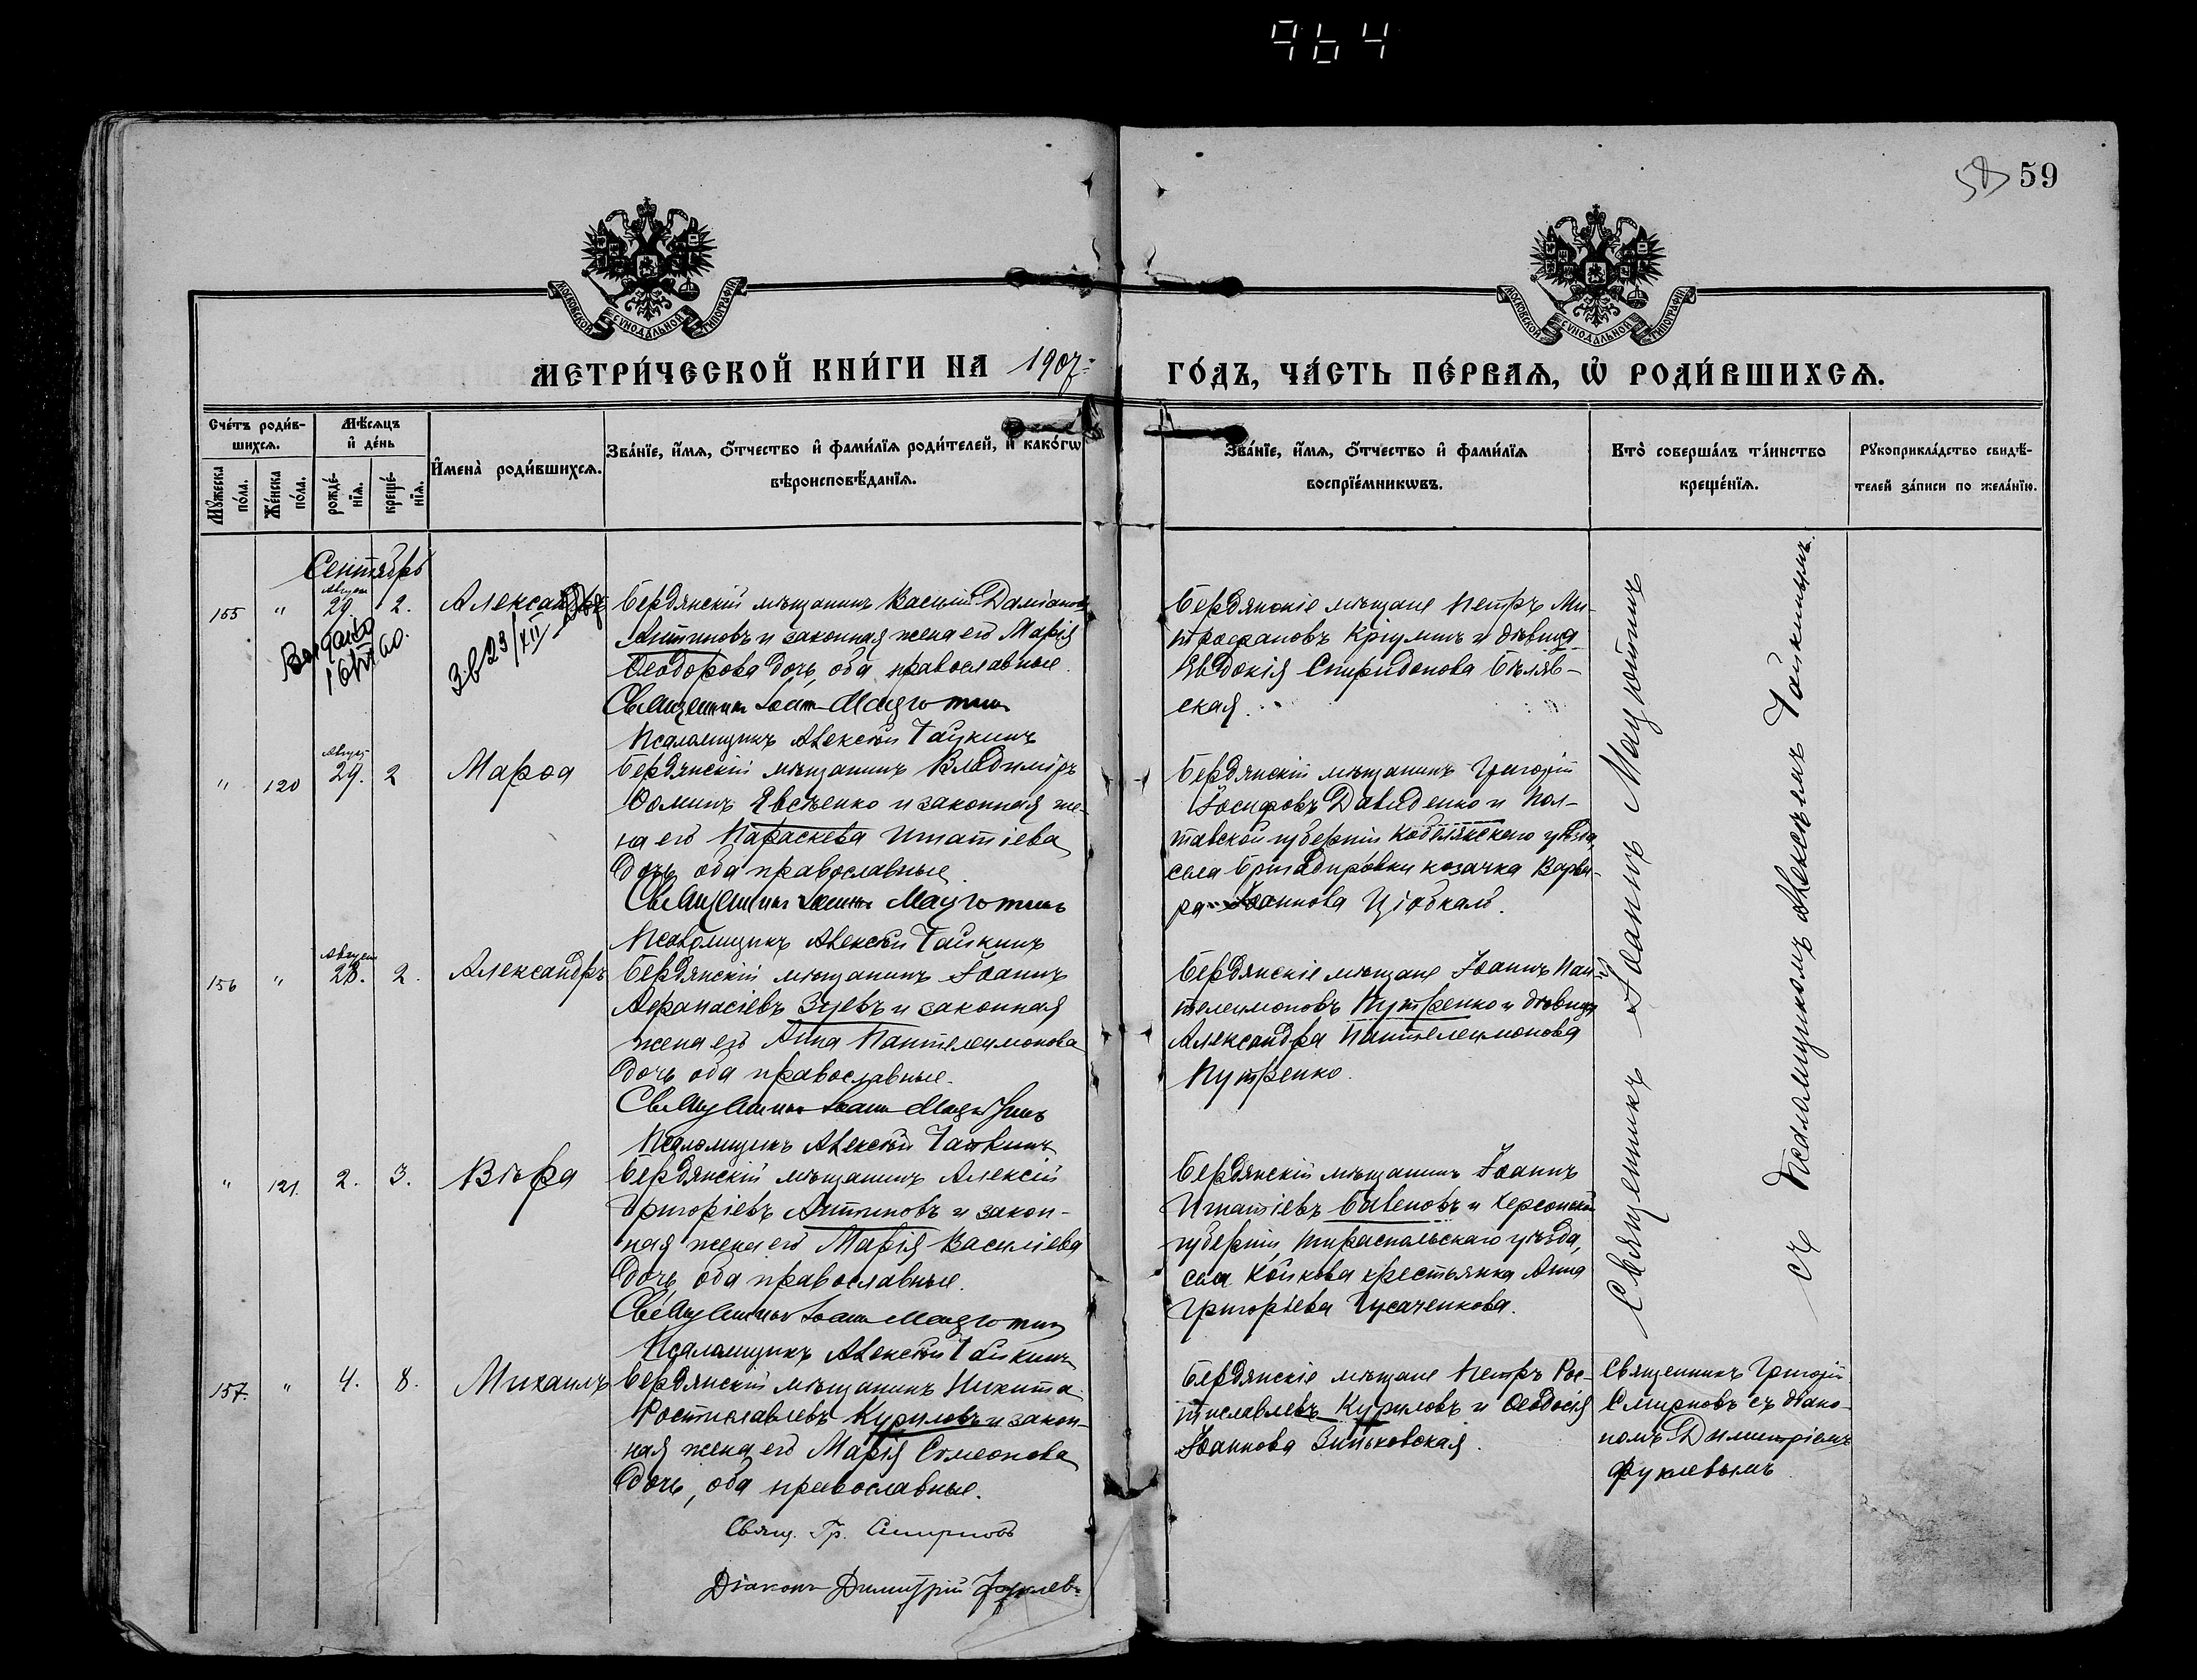 964
58 59
МОСКОВСКОЙ СУНОДАЛЬНОЙ ТИПОГРАФІИ
МОСКОВСКОЙ СУНОДАЛЬНОЙ ТИПОГРАФІИ
МЕТРИ́ЧЕСКОЙ КНИ́ГИ НА 1907 ГО́ДЪ, ЧА́СТЬ ПЕ́РВАѦ, Ѡ҆ РОДИ́ВШИХСѦ.
Сче́тъ роди́в-
шихсѧ.
Мѣ́сѧцъ
и҆ де́нь
Мꙋ́жеска
по́ла.
Же́нска
по́ла.
рожде́-
нїѧ.
креще́-
нїѧ.
И҆мена̀ роди́вшихсѧ.
Зва́нїе, и҆́мѧ, ѻ҆́тчество и҆ фами́лїѧ роди́телей, и҆ како́гѡ
вѣроисповѣ́данїѧ.
Зва́нїе, и҆́мѧ, ѻ҆́тчество и҆ фами́лїѧ
воспрїе́мникѡвъ.
Кто̀ соверша́лъ та́инство
креще́нїѧ.
Рꙋкоприкла́дство свидѣ́-
телей за́писи по жела́нїю.
Сентябрь
Август
155 " 29. 2. Александръ
Бердянскій мѣщанинъ Василій Даміановъ
Антиповъ и законная жена его Марія
Ѳеодорова дочь, оба православные.
Священникъ Іоаннъ Мацютинъ
Псаломщикъ Алексѣй Гайкинъ
Бердянскіе мѣщане Петръ Ми-
трофановъ Кріулинъ и дѣвица
Евдокія Спиридонова Бѣляв-
ская.
Август
" 120 29. 2 Марѳа
Бердянскій мѣщанинъ Владиміръ
Ѳоминъ Явсѣенко и законная же-
на его Параскева Игнатіева
дочь, оба православные.
Священникъ Іоаннъ Мацютинъ
Псаломщикъ Алексѣй Гайкинъ
Бердянскій мѣщанинъ Григорій
Іосифовъ Давиденко и Пол-
тавской губерніи Кобелякскаго уѣзда
села Бригадировки козачка Варва-
ра Іоаннова
Август
156 " 28. 2. Александръ
Бердянскій мѣщанинъ Іоаннъ
Аѳанасіевъ Зуевъ и законная
жена его Анна Пантелеимонова
дочь, оба православные.
Священникъ Іоаннъ Мацютинъ
Псаломщикъ Алексѣй Гайкинъ
Бердянскіе мѣщане Іоаннъ Пан-
телеимоновъ Путренко и дѣвица
Александра Пантелеимонова
Путренко.
" 121. 2. 3. Вѣра
Бердянскій мѣщанинъ Алексій
Григоріевъ Антиповъ и закон-
ная жена его Марія Василіева
дочь, оба православные.
Священникъ Іоаннъ Мацютинъ
Псаломщикъ Алексѣй Гайкинъ
Бердянскій мѣщанинъ Іоаннъ
Игнатіевъ и Херсонской
губерніи, Тираспольскаго уѣзда,
села Койкова крестьянка Анна
Григоріева Гусаченкова.
Священникъ Іоаннъ Мацютинъ
съ Псаломщикомъ Алексѣемъ Гайкинымъ.
157. " 4. 8. Михаилъ
Бердянскій мѣщанинъ Никита
Ростиславлевъ Куриловъ и закон-
ная жена его Марія Симеонова
дочь, оба православные.
Свящ. Гр. Смирновъ
Діаконъ Димитрій Фуклевъ
Бердянскіе мѣщане Петръ Рос-
тиславлевъ Куриловъ и Ѳеодосія
Іоаннова Зиньковская.
Священникъ Григорій
Смирновъ съ діако-
номъ Димитріемъ
Фуклевымъ